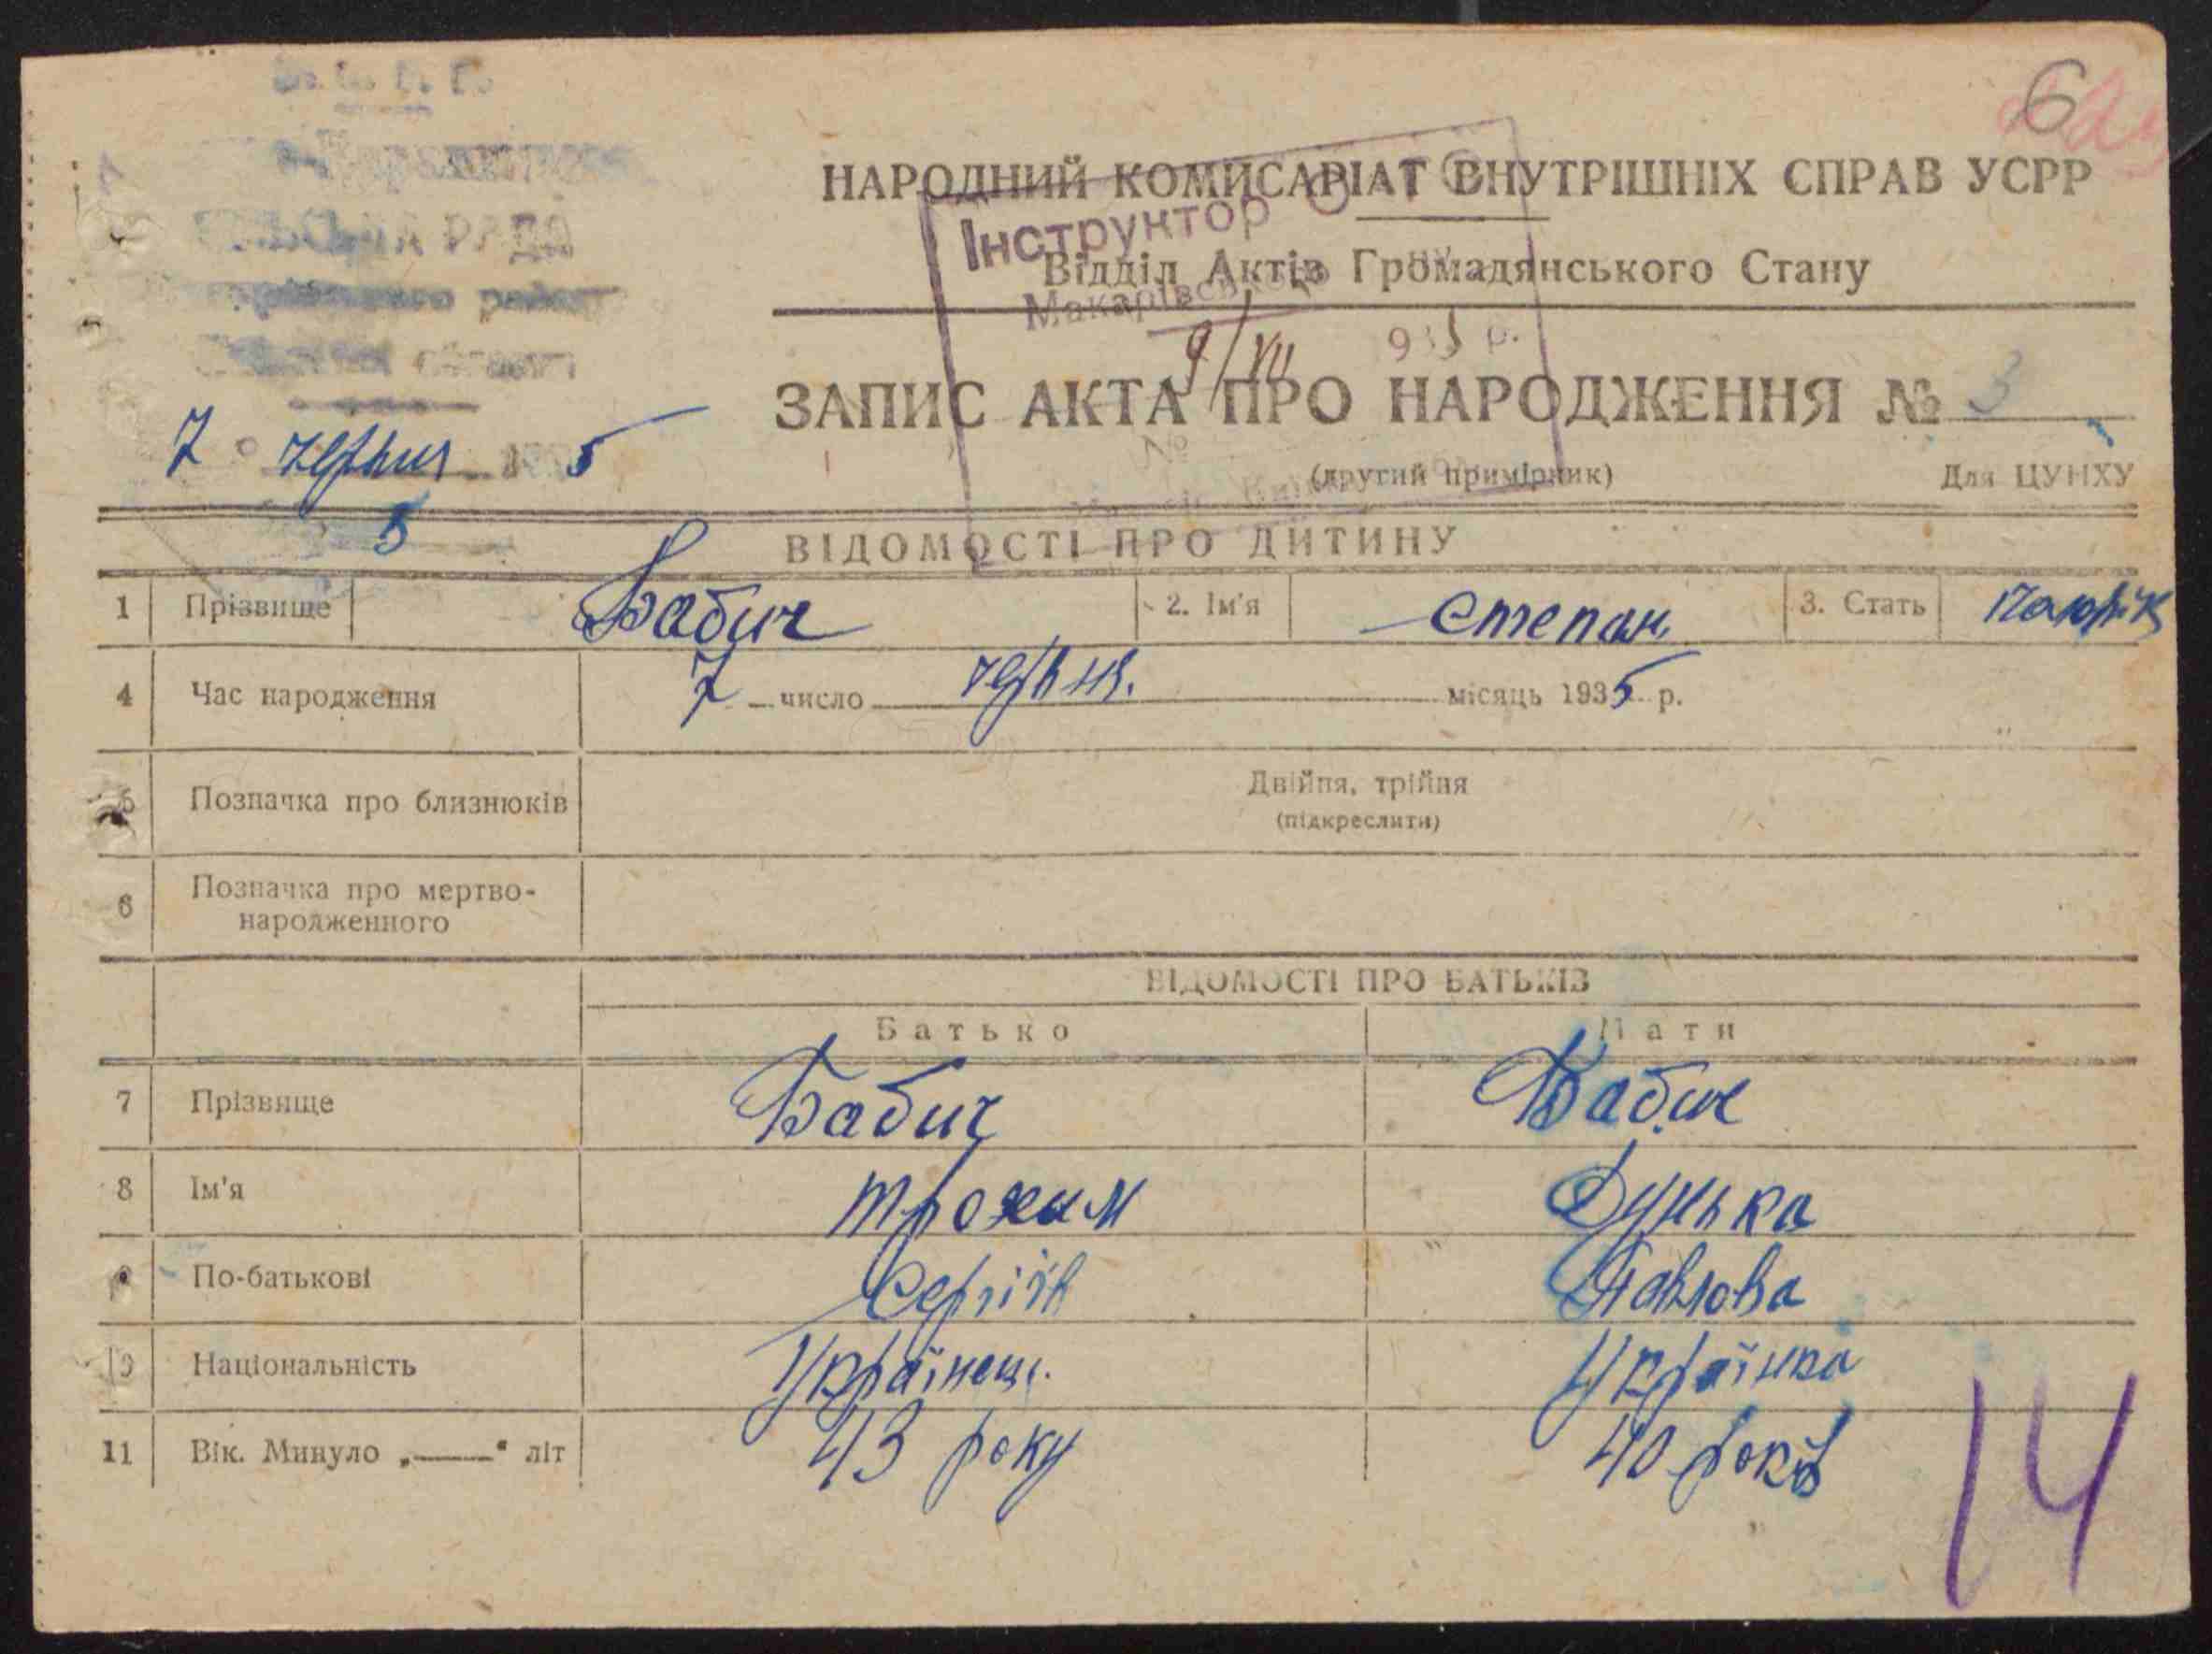 6
НАРОДНИЙ КОМИСАРІАТ ВНУТРІШНІХ СПРАВ УСРР
Інструктор
Відділ Актів Громадянського Стану
Макарівськ
9/VII 935 р.
СІЛЬСЬКА РАДА
району
області
ЗАПИС АКТА ПРО НАРОДЖЕННЯ № 3
7 червня 5
(другий примірник) Для ЦУНХУ
5
ВІДОМОСТІ ПРО ДИТИНУ
1 Прізвище Бабич 2. Ім'я Степан 3. Стать
4 Час народження 7 число червня. місяць 1935 р.
5 Позначка про близнюків Двійня, трійня
(підкреслити)
6 Позначка про мертво-
народженного
ВІДОМОСТІ ПРО БАТЬКІВ
Батько Мати
7 Прізвище Бабич Бабич
8 Ім'я Трохим Дунька
9 По-батькові Сергіїв Павлова
10 Національність Українець. Українка
11 Вік. Минуло „——“ літ 43 року 40 років
14